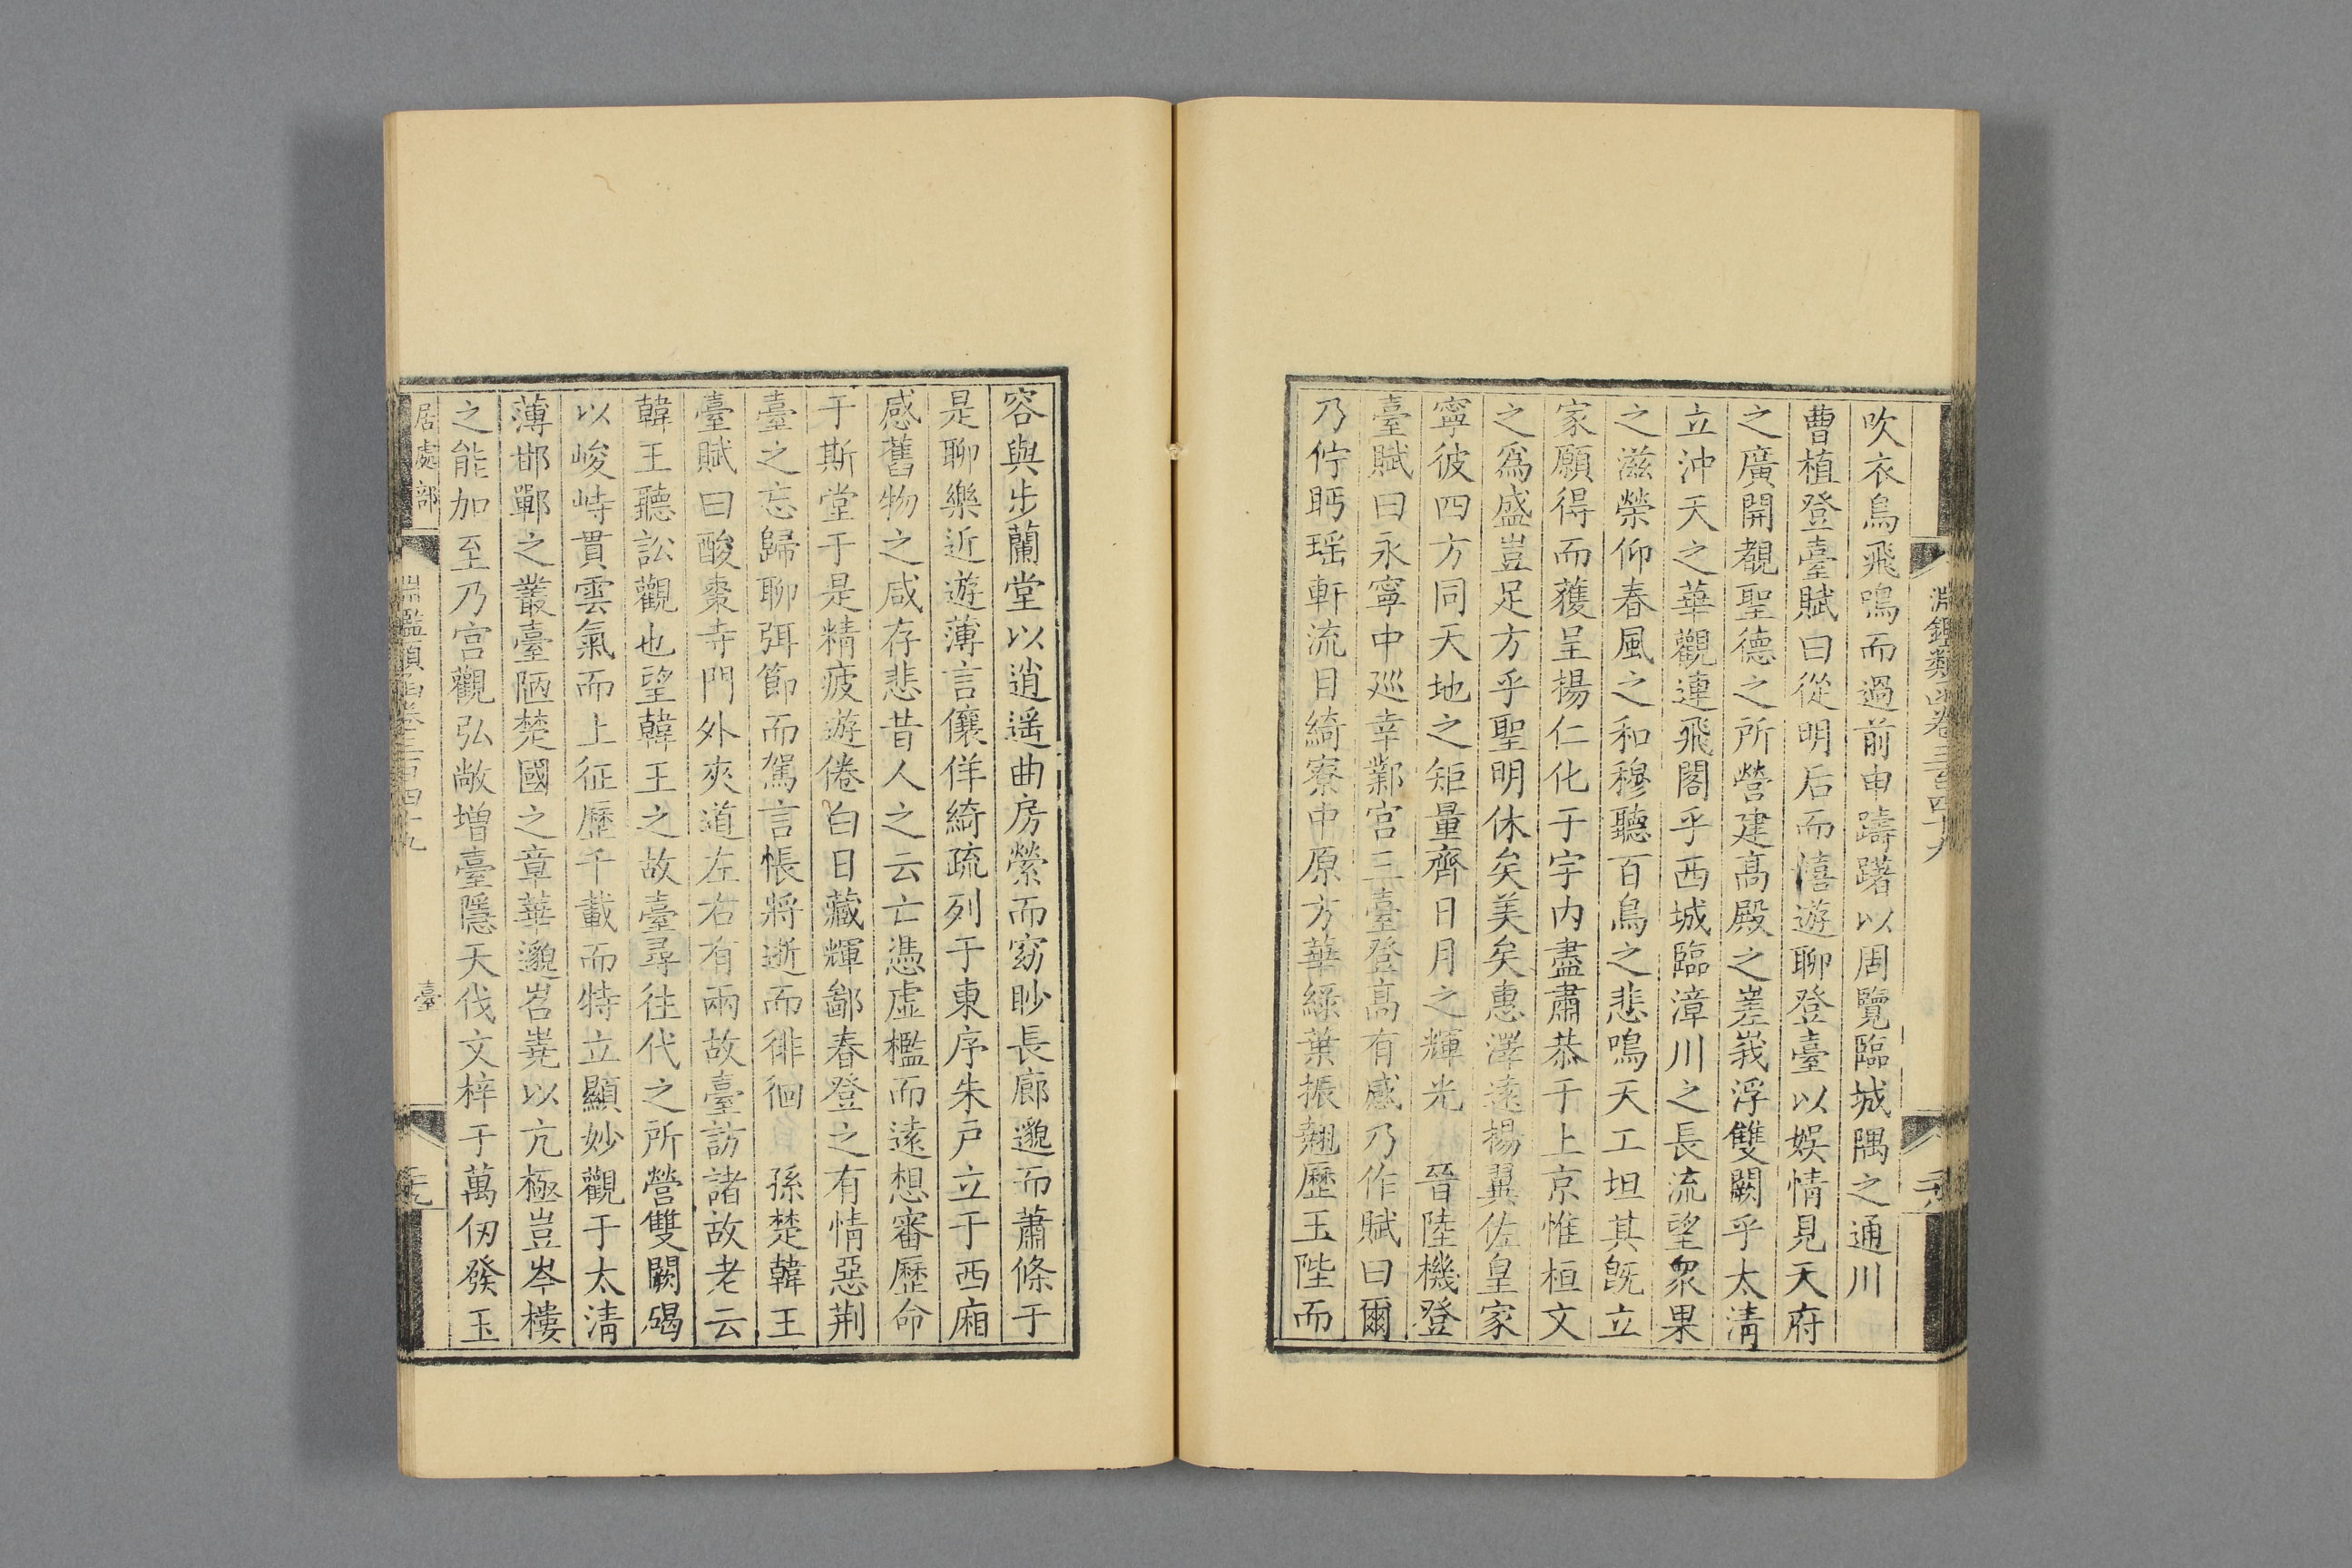 淵鑑類函卷三百四十九
吹衣鳥飛鳴而過前申躊躇以周覽臨城隅之通川
曹植登臺賦曰從明后而嬉遊聊登臺以娛情見天府
之廣開覩聖德之所營建高殿之嵳峩浮雙闕乎太清
立沖天之華觀連飛閣乎西城臨漳川之長流望衆果
之滋榮仰春風之和穆聽百鳥之悲鳴天工坦其旣立
家願得而獲呈揚仁化于宇内盡肅恭于上京惟桓文
之爲盛豈足方乎聖明休矣美矣惠澤遠揚翼佐皇家
寧彼四方同天地之矩量齊日月之輝光　晉陸機登
臺賦曰永寧中廵幸鄴宮三臺登高有感乃作賦曰爾
乃佇眄瑶軒流目綺寮中原方華綠葉振翹歷玉陛而
容與步蘭堂以逍遥曲房縈而窈眇長廊邈而蕭條于
是聊樂近遊薄言儴佯綺疏列于東序朱戸立于西廂
感舊物之咸存悲昔人之云亡憑虚檻而遠想審歷命
于斯堂于是精疲遊倦白日藏輝鄙春登之有情惡荆
臺之忘歸聊弭節而駕言悵將逝而徘徊　孫楚韓王
臺賦曰酸棗寺門外夾道左右有兩故臺訪諸故老云
韓王聽訟觀也望韓王之故臺尋往代之所營雙闕碣
以峻峙貫雲氣而上征歷千載而特立顯妙觀于太清
薄邯鄲之叢臺陋楚國之章華邈岧嶤以亢極豈岑樓
之能加至乃宮觀弘敞增臺隱天伐文梓于萬仞發玉
居處部
淵鑑類函卷三百四十九
臺